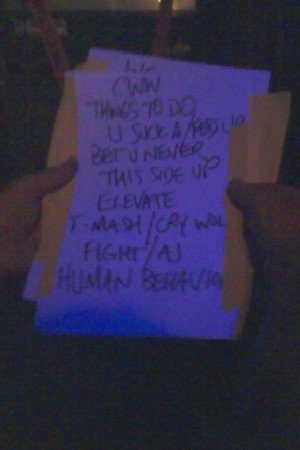 CWW
THINGS TO DO
U SUCK A/FED UP
BET U NEVER
THIS SIDE UP
ELEVATE
T-MASH/CRY WOL
FIGHT/AJ
HUMAN BEHAVIO